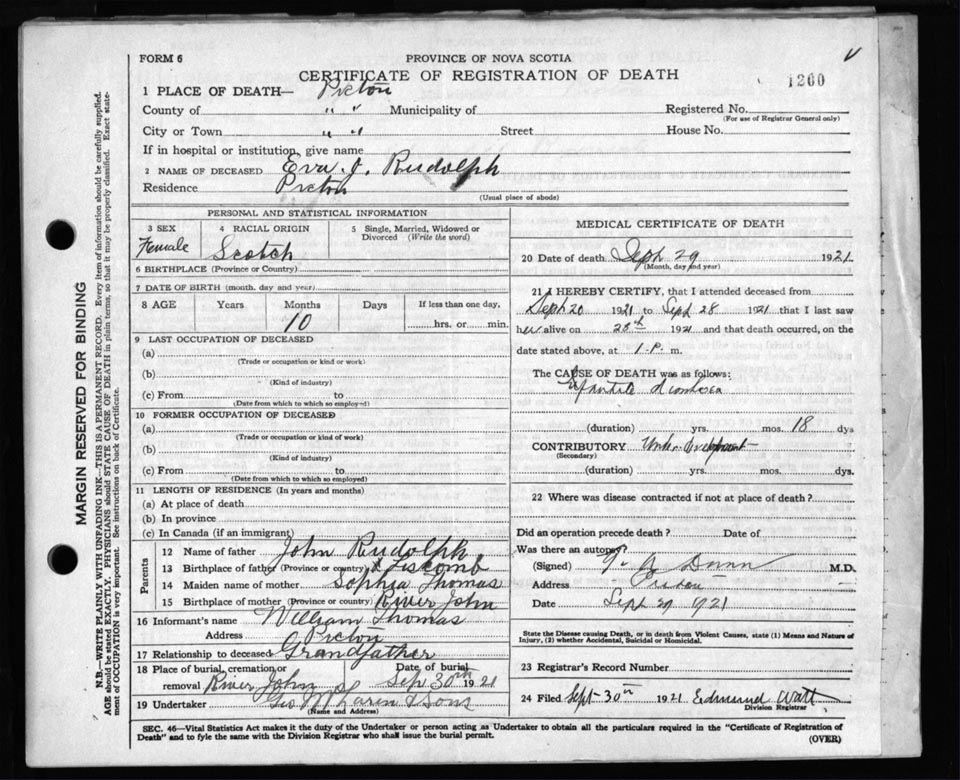 FORM 6
PROVINCE OF NOVA SCOTIA
CERTIFICATE OF REGISTRATION OF DEATH
1200
1 PLACE OF DEATH— Pictou
County of " " Municipality of Registered No.
(For use of Registrar General only)
City or Town " " Street House No.
If in hospital or institution, give name
2 NAME OF DECEASED Eva J. Rudolph
Residence Pictou
(Usual place of abode)
MARGIN RESERVED FOR BINDING
N.B.—WRITE PLAINLY WITH UNFADING INK—THIS IS A PERMANENT RECORD. Every item of information should be carefully supplied.
AGE should be stated EXACTLY. PHYSICIANS should STATE CAUSE OF DEATH in plain terms, so that it may be properly classified. Exact state-
ment of OCCUPATION is very important. See instructions on back of Certificate.
PERSONAL AND STATISTICAL INFORMATION
3 SEX 4 RACIAL ORIGIN 5 Single, Married, Widowed or
Divorced (Write the word)
Female Scotch
6 BIRTHPLACE (Province or Country)
7 DATE OF BIRTH (month, day and year)
8 AGE Years Months Days If less than one day,
10 hrs. or min.
9 LAST OCCUPATION OF DECEASED
(a)
(Trade or occupation or kind or work)
(b)
(Kind of industry)
(c) From to
(Date from which to which so employed)
10 FORMER OCCUPATION OF DECEASED
(a)
(Trade or occupation or kind of work)
(b)
(Kind of industry)
(c) From to
(Date from which to which so employed)
11 LENGTH OF RESIDENCE (In years and months)
(a) At place of death
(b) In province
(c) In Canada (if an immigrant)
Parents
12 Name of father John Rudolph
13 Birthplace of father (Province or country) Liscomb
14 Maiden name of mother Sophia Thomas
15 Birthplace of mother (Province or country) River John
16 Informant's name William Thomas
Address Pictou
17 Relationship to deceased Grandfather
18 Place of burial, cremation or Date of burial
removal River John Sep 30th 1921
19 Undertaker Geo McLaren & Sons
(Name and Address)
MEDICAL CERTIFICATE OF DEATH
20 Date of death Sept 29 1921
(Month, day and year)
21 I HEREBY CERTIFY, that I attended deceased from
Sept 20 1921 to Sept 28 1921 that I last saw
her alive on 28th 1921 and that death occurred, on the
date stated above, at 1 P. m.
The CAUSE OF DEATH was as follows:
Infantile diarrhoea
(duration) yrs. mos. 18 dys
CONTRIBUTORY Under development
(Secondary)
(duration) yrs. mos. dys.
22 Where was disease contracted if not at place of death?
Did an operation precede death? Date of
Was there an autopsy?
(Signed) G. A. Dunn M.D.
Address Pictou
Date Sept 29 1921
State the Disease causing Death, or in death from Violent Causes, state (1) Means and Nature of
Injury, (2) whether Accidental, Suicidal or Homicidal.
23 Registrar's Record Number
24 Filed Sept 30th 1921 Edmund Watt
Division Registrar
SEC. 46—Vital Statistics Act makes it the duty of the Undertaker or person acting as Undertaker to obtain all the particulars required in the "Certificate of Registration of
Death" and to fyle the same with the Division Registrar who shall issue the burial permit.
(OVER)